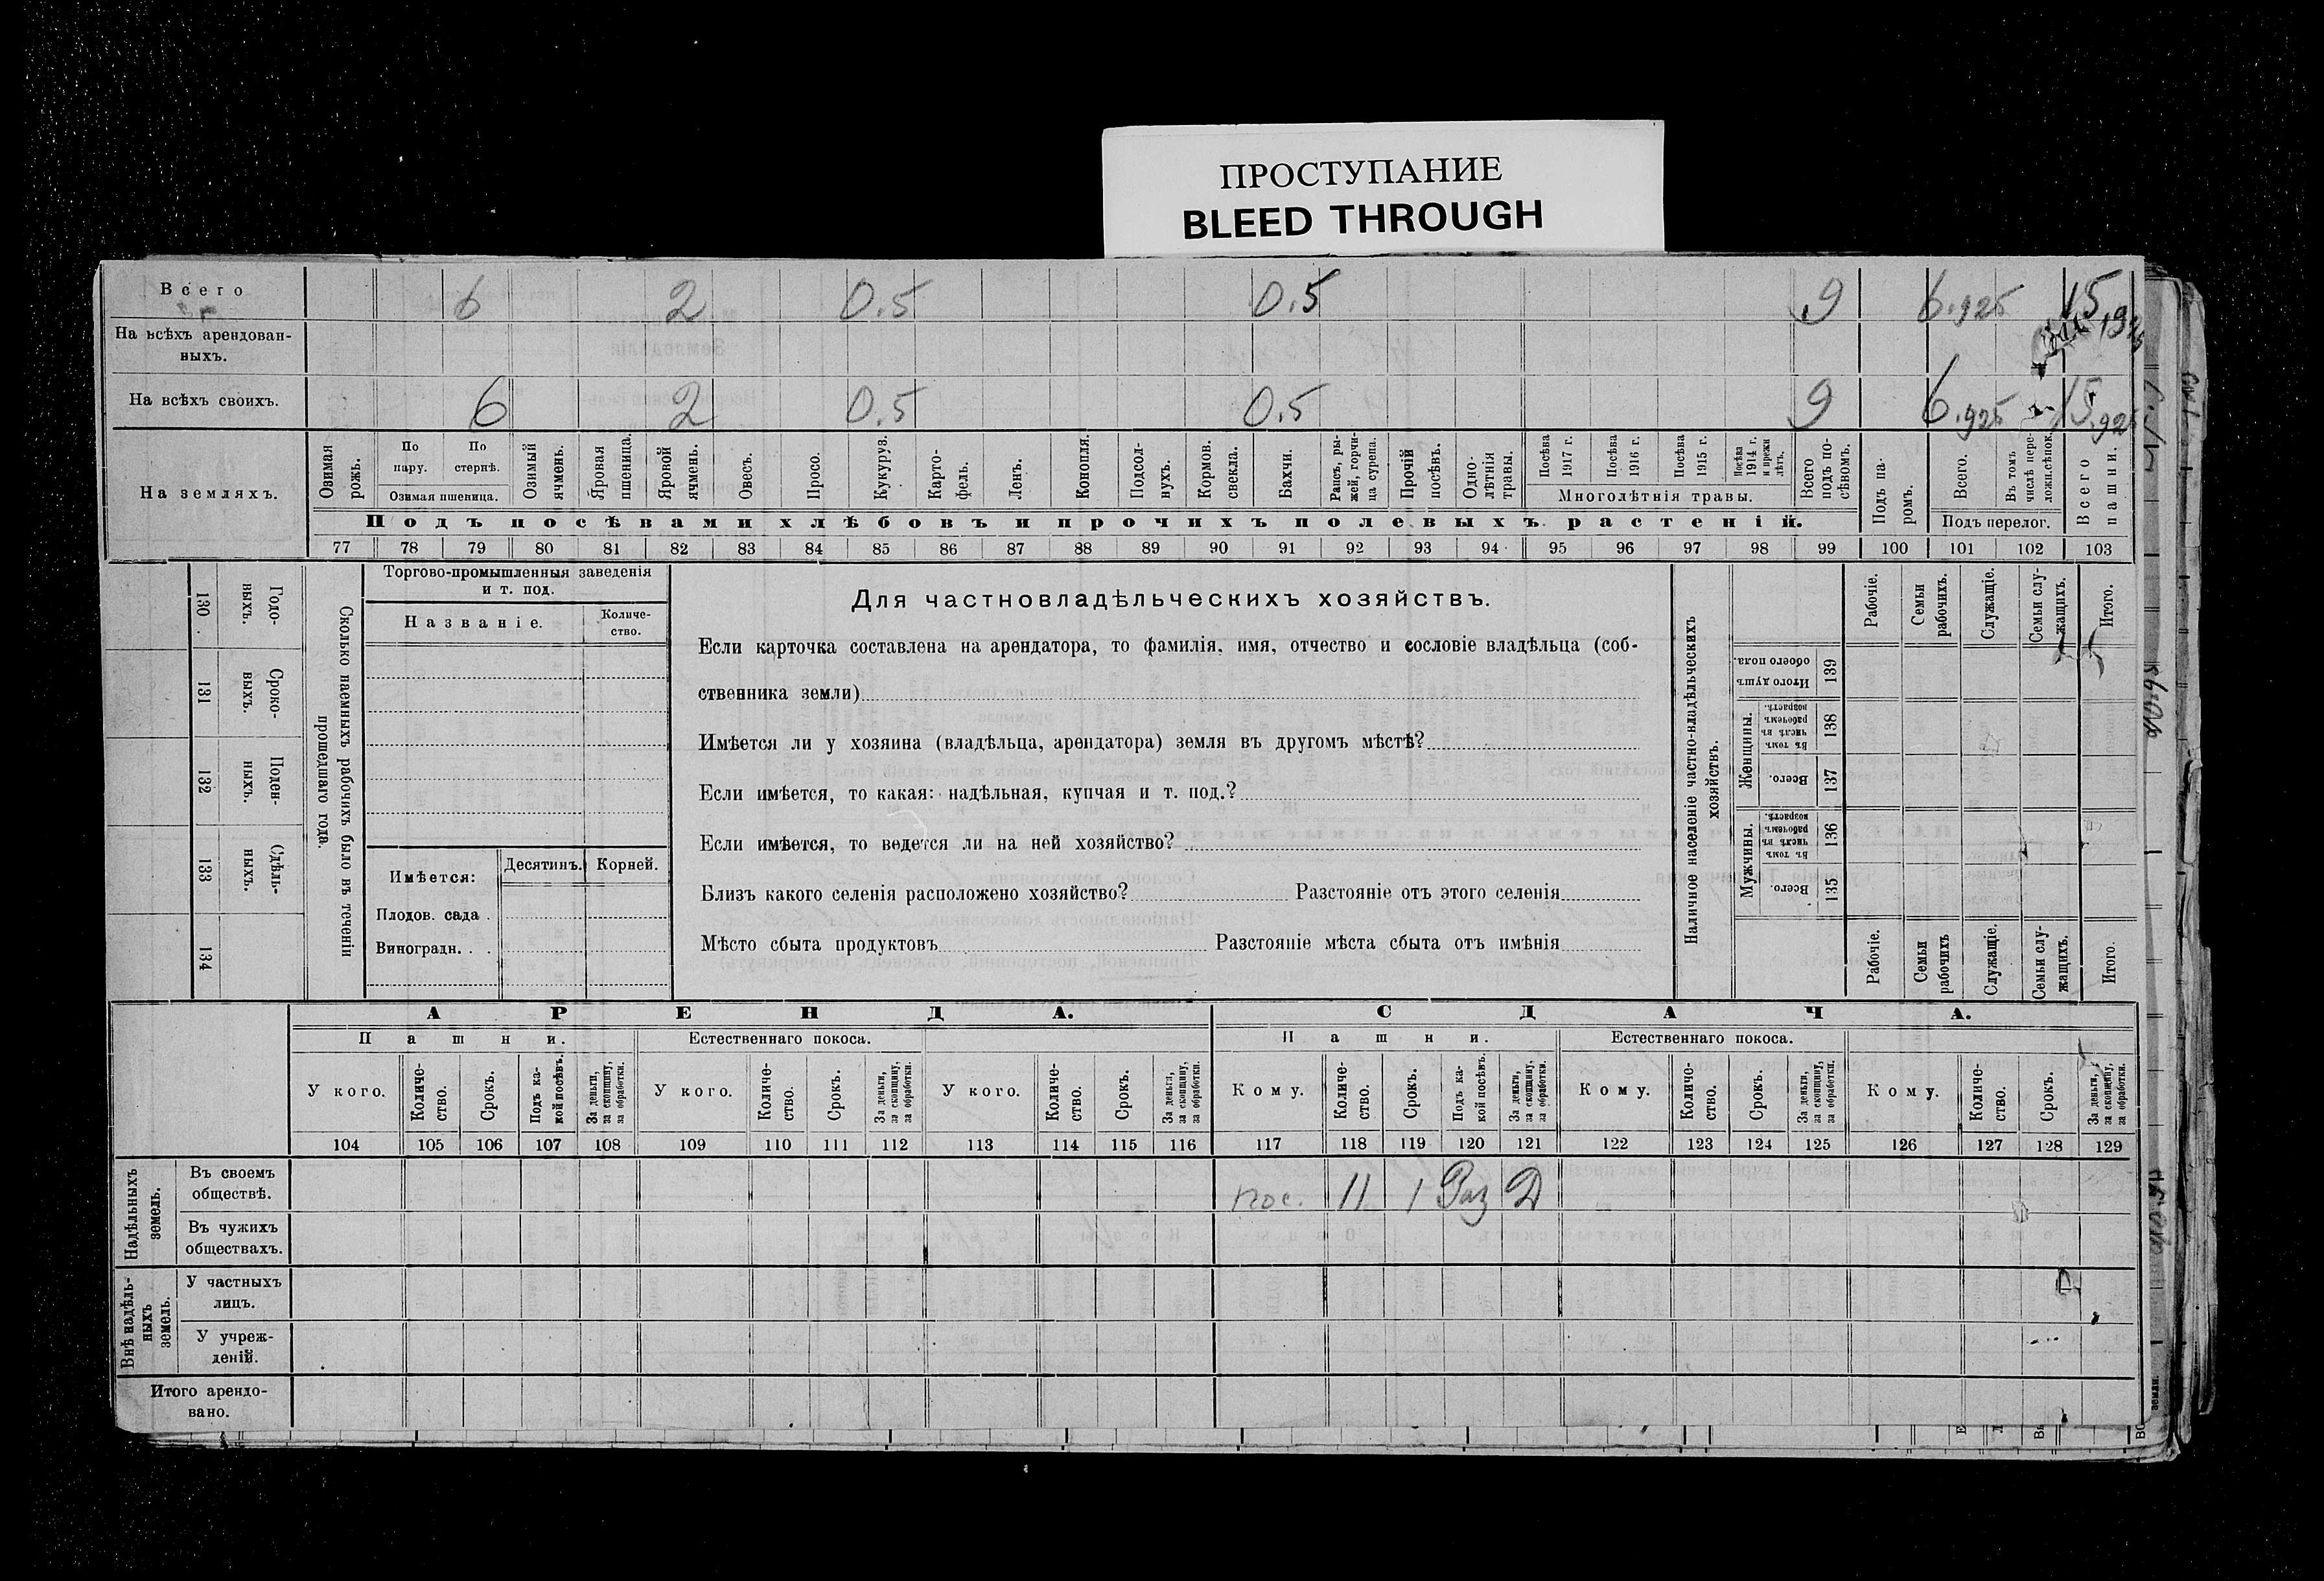 ПРОСТУПАНИЕ
BLEED THROUGH
Всего 6 2 0.5 0.5 9 6.925 15,925
На всѣхъ арендован-
ныхъ.
На всѣхъ своихъ. 6 2 0.5 0.5 9 6.925 15.925
На земляхъ.
Озимая рожь.
По пару.
По стернѣ.
Озимая пшеница.
Озимый ячмень.
Яровая пшеница.
Яровой ячмень.
Овесъ.
Просо.
Кукуруз.
Карто-
фель.
Ленъ.
Конопля.
Подсол-
нухъ.
Кормов. свекла.
Бахчи.
Рапсъ, ры-
жей, горчи-
ца сурепа.
Прочій посѣвъ.
Одно-
лѣтнія травы.
Посѣва 1917 г.
Посѣва 1916 г.
Посѣва 1915 г.
Посѣва 1914 г. и прежн лѣтъ.
Многолѣтнія травы.
Всего подъ по-
сѣвомъ.
Подъ па-
ромъ.
Всего.
Въ томъ числѣ пере-
ложн.сѣнок.
Подъ перелог.
Всего пашни.
Подъ посѣвами хлѣбовъ и прочихъ полевыхъ растеній.
77 78 79 80 81 82 83 84 85 86 87 88 89 90 91 92 93 94 95 96 97 98 99 100 101 102 103
Годо-
ныхъ.
130
Сроко-
выхъ.
131
Поден-
ныхъ.
132
Сдѣль-
ныхъ.
133
134
Сколько наемныхъ рабочихъ было въ теченіи
прошедшаго года.
Торгово-промышленныя заведенія
и т. под.
Названіе.
Количе-
ство.
Имѣется:
Десятинъ.
Корней.
Плодов. сада .
Виноградн. . .
Для частновладѣльческихъ хозяйствъ.
Если карточка составлена на арендатора, то фамилія, имя, отчество и сословіе владѣльца (соб-
ственника земли)
Имѣется ли у хозяина (владѣльца, арендатора) земля въ другомъ мѣстѣ?
Если имѣется, то какая: надѣльная, купчая и т. под.?
Если имѣется, то ведется ли на ней хозяйство?
Близъ какого селенія расположено хозяйство? Разстояніе отъ этого селенія
Мѣсто сбыта продуктовъ Разстояніе мѣста сбыта отъ имѣнія
Наличное населеніе частно-владѣльческихъ
хозяйствъ.
Рабочіе.
Семьи рабочихъ.
Служащіе.
Семьи слу-
жащихъ.
Итого.
Итого душъ обоего пола.
139
Женщины.
Въ томъ числѣ въ рабочемъ возрастѣ.
138
Всего.
137
Мужчины.
Въ томъ числѣ въ рабочемъ возрастѣ.
136
Всего.
135
Рабочіе.
Семьи рабочихъ
Служащіе.
Семьи слу-
жащихъ.
Итого.
АРЕНДА. СДАЧА.
Пашни. Естественнаго покоса. Пашни. Естественнаго покоса.
У кого.
Количе-
ство.
Срокъ.
Подъ ка-
кой посѣвъ.
За деньги,
за скопщину,
за обработки.
У кого.
Количе-
ство.
Срокъ.
За деньги,
за скопщину,
за обработки.
У кого.
Количе-
ство.
Срокъ.
За деньги,
за скопщину,
за обработки.
Кому.
Количе-
ство.
Срокъ.
Подъ ка-
кой посѣвъ.
За деньги,
за скопщину,
за обработки.
Кому.
Количе-
ство.
Срокъ.
За деньги,
за скопщину,
за обработки.
Кому.
Количе-
ство.
Срокъ.
За деньги,
за скопщину,
за обработки.
104 105 106 107 108 109 110 111 112 113 114 115 116 117 118 119 120 121 122 123 124 125 126 127 128 129
Надѣльныхъ
земель.
Въ своемъ
обществѣ.
пос. 11 1 Раз Д
Въ чужихъ
обществахъ.
Внѣ надѣль-
ныхъ
земель.
У частныхъ
лицъ.
У учреж-
деній.
Итого арендо-
вано.